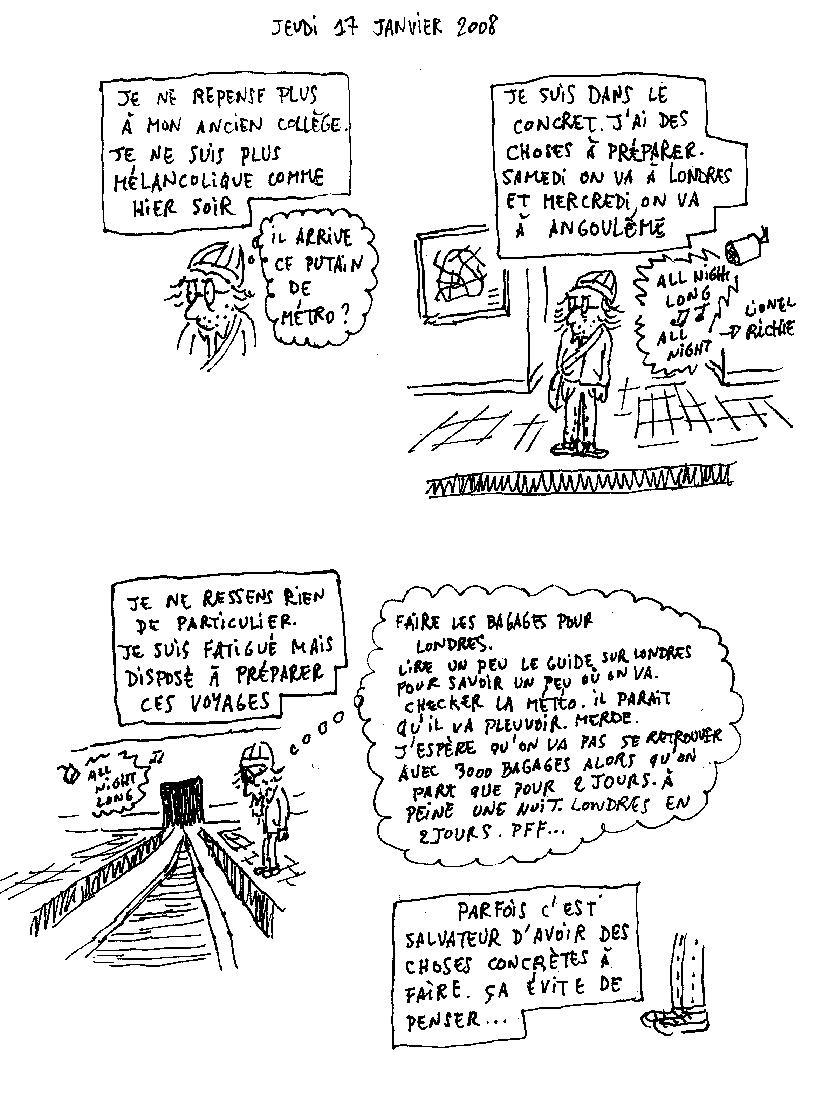 JEUDI 17 JANVIER 2008
JE NE REPENSE PLUS
À MON ANCIEN COLLÈGE.
JE NE SUIS PLUS
MÉLANCOLIQUE COMME
HIER SOIR
IL ARRIVE
CE PUTAIN
DE
MÉTRO?
JE SUIS DANS LE
CONCRET. J'AI DES
CHOSES À PRÉPARER.
SAMEDI ON VA À LONDRES
ET MERCREDI, ON VA
À ANGOULÊME
ALL NIGHT
LONG
ALL
NIGHT
LIONEL
RICHIE
JE NE RESSENS RIEN
DE PARTICULIER.
JE SUIS FATIGUÉ MAIS
DISPOSÉ À PRÉPARER
CES VOYAGES
ALL
NIGHT
LONG
FAIRE LES BAGAGES POUR
LONDRES.
LIRE UN PEU LE GUIDE SUR LONDRES
POUR SAVOIR UN PEU OÙ ON VA.
CHECKER LA MÉTÉO. IL PARAÎT
QU'IL VA PLEUVOIR. MERDE.
J'ESPÈRE QU'ON VA PAS SE RETROUVER
AVEC 3000 BAGAGES ALORS QU'ON
PART QUE POUR 2 JOURS. À
PEINE UNE NUIT. LONDRES EN
2 JOURS. PFF...
PARFOIS C'EST
SALVATEUR D'AVOIR DES
CHOSES CONCRÈTES À
FAIRE. ÇA ÉVITE DE
PENSER...